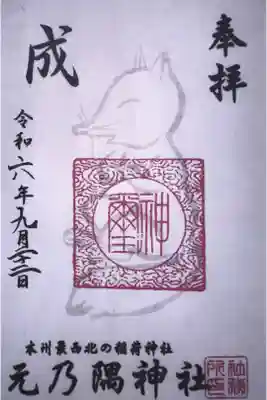 奉拝
成
令和六年九月二十二日
神璽
本州最西北の稲荷神社
元乃隅神社